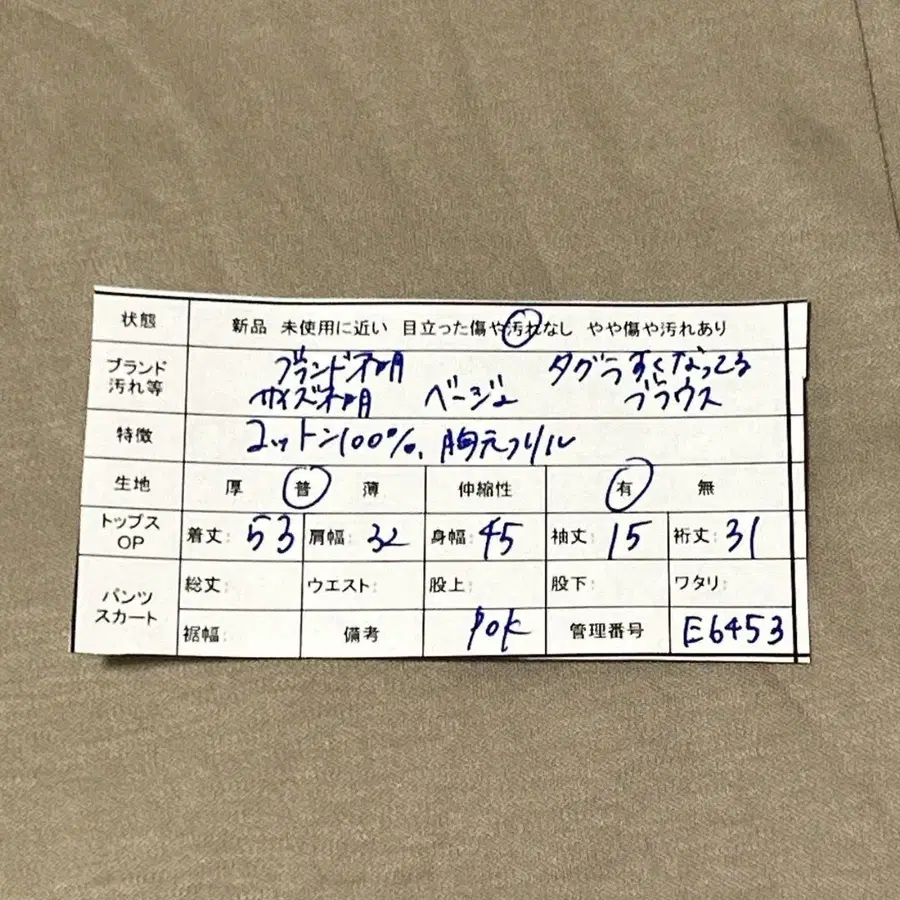 状態 新品 未使用に近い 目立った傷や汚れなし やや傷や汚れあり
ブランド 汚れ等 ブランド不明 タグうすくなってる
サイズ不明 ベージュ ブラウス
特徴 コットン100%、胸元フリル
生地 厚 普 薄 伸縮性 有 無
トップス OP 着丈: 53 肩幅: 32 身幅: 45 袖丈: 15 裄丈: 31
パンツ スカート 総丈: ウエスト: 股上: 股下: ワタリ:
裾幅: 備考 管理番号 E6453